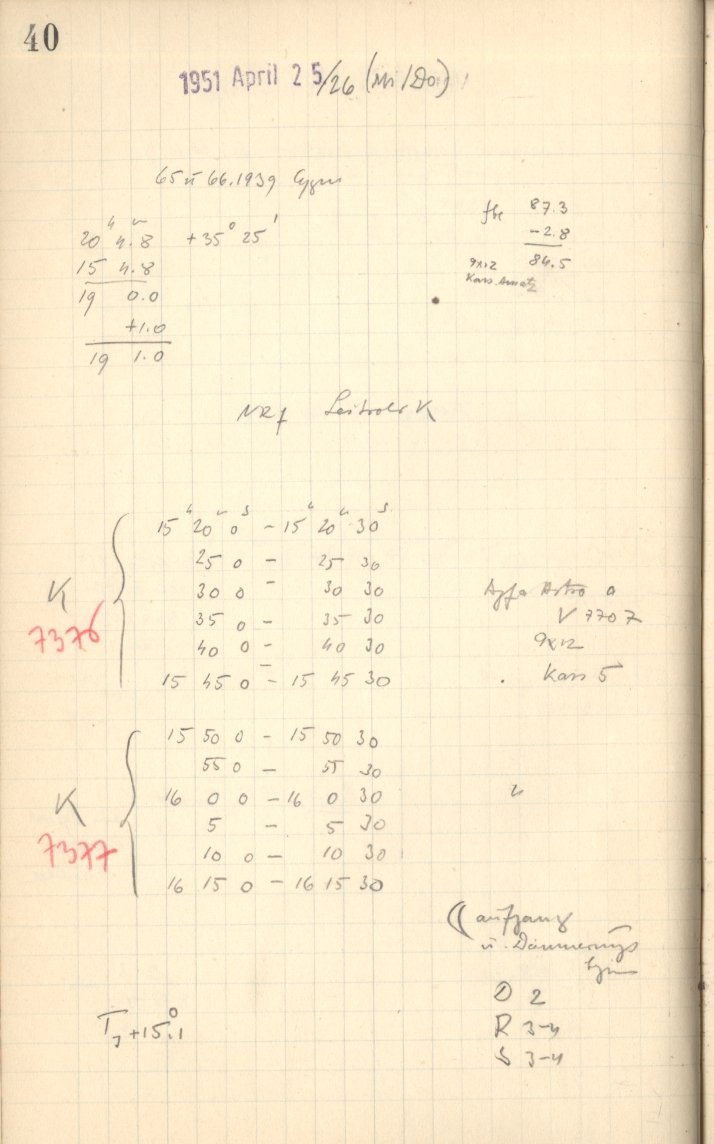 40
1951 April 25/26 (Mi/Do)
65 u 66.1939 Cygni
20ʰ 4.8ᵐ +35° 25'
15 4.8
19 0.0
+1.0
19 1.0
87.3
-2.8
84.5
9x12
Kass. Ansatz
NRf Leitrohr K
K
7376
15ʰ 20ᵐ 0ˢ - 15ʰ 20ᵐ 30ˢ
25 0 - 25 30
30 0 - 30 30
35 0 - 35 30
40 0 - 40 30
15 45 0 - 15 45 30
Agfa Astro
V 7707
9x12
Kass 5
K
7377
15 50 0 - 15 50 30
55 0 - 55 30
16 0 0 - 16 0 30
5 - 5 30
10 0 - 10 30
16 15 0 - 16 15 30
"
☾ aufgang
u. Dämmerungs
D 2
R 3-4
S 3-4
T +15.°1